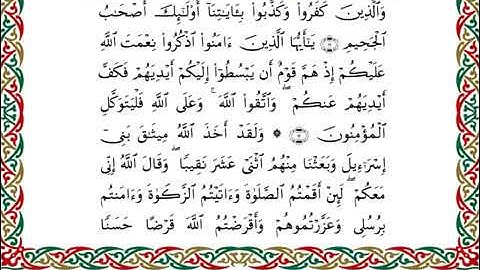 وَٱلَّذِينَ كَفَرُوا۟ وَكَذَّبُوا۟ بِـَٔايَـٰتِنَآ أُو۟لَـٰٓئِكَ أَصْحَـٰبُ
ٱلْجَحِيمِ ۝١٠ يَـٰٓأَيُّهَا ٱلَّذِينَ ءَامَنُوا۟ ٱذْكُرُوا۟ نِعْمَتَ ٱللَّهِ
عَلَيْكُمْ إِذْ هَمَّ قَوْمٌ أَن يَبْسُطُوٓا۟ إِلَيْكُمْ أَيْدِيَهُمْ فَكَفَّ
أَيْدِيَهُمْ عَنكُمْ ۖ وَٱتَّقُوا۟ ٱللَّهَ ۚ وَعَلَى ٱللَّهِ فَلْيَتَوَكَّلِ
ٱلْمُؤْمِنُونَ ۝١١ ۞ وَلَقَدْ أَخَذَ ٱللَّهُ مِيثَـٰقَ بَنِىٓ
إِسْرَٰٓءِيلَ وَبَعَثْنَا مِنْهُمُ ٱثْنَىْ عَشَرَ نَقِيبًا ۖ وَقَالَ ٱللَّهُ إِنِّى
مَعَكُمْ ۖ لَئِنْ أَقَمْتُمُ ٱلصَّلَوٰةَ وَءَاتَيْتُمُ ٱلزَّكَوٰةَ وَءَامَنتُم
بِرُسُلِى وَعَزَّرْتُمُوهُمْ وَأَقْرَضْتُمُ ٱللَّهَ قَرْضًا حَسَنًا